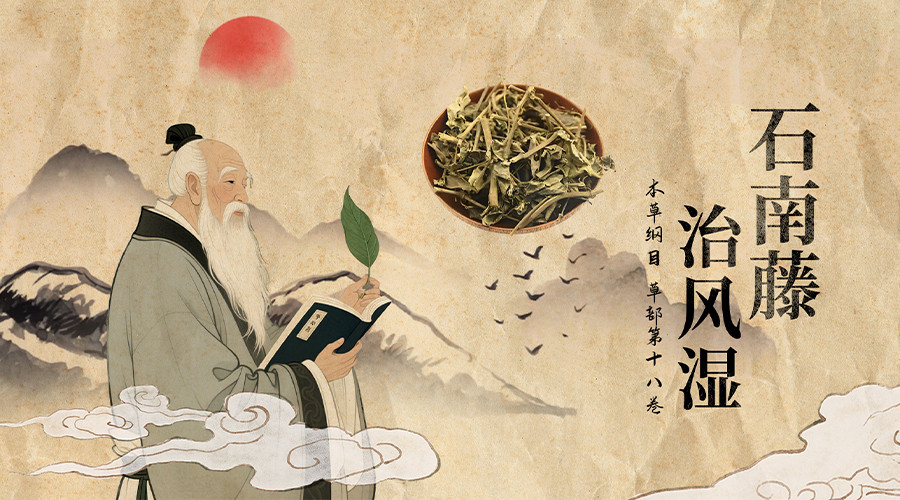 石南藤
治风湿
本草纲目 草部第十八卷